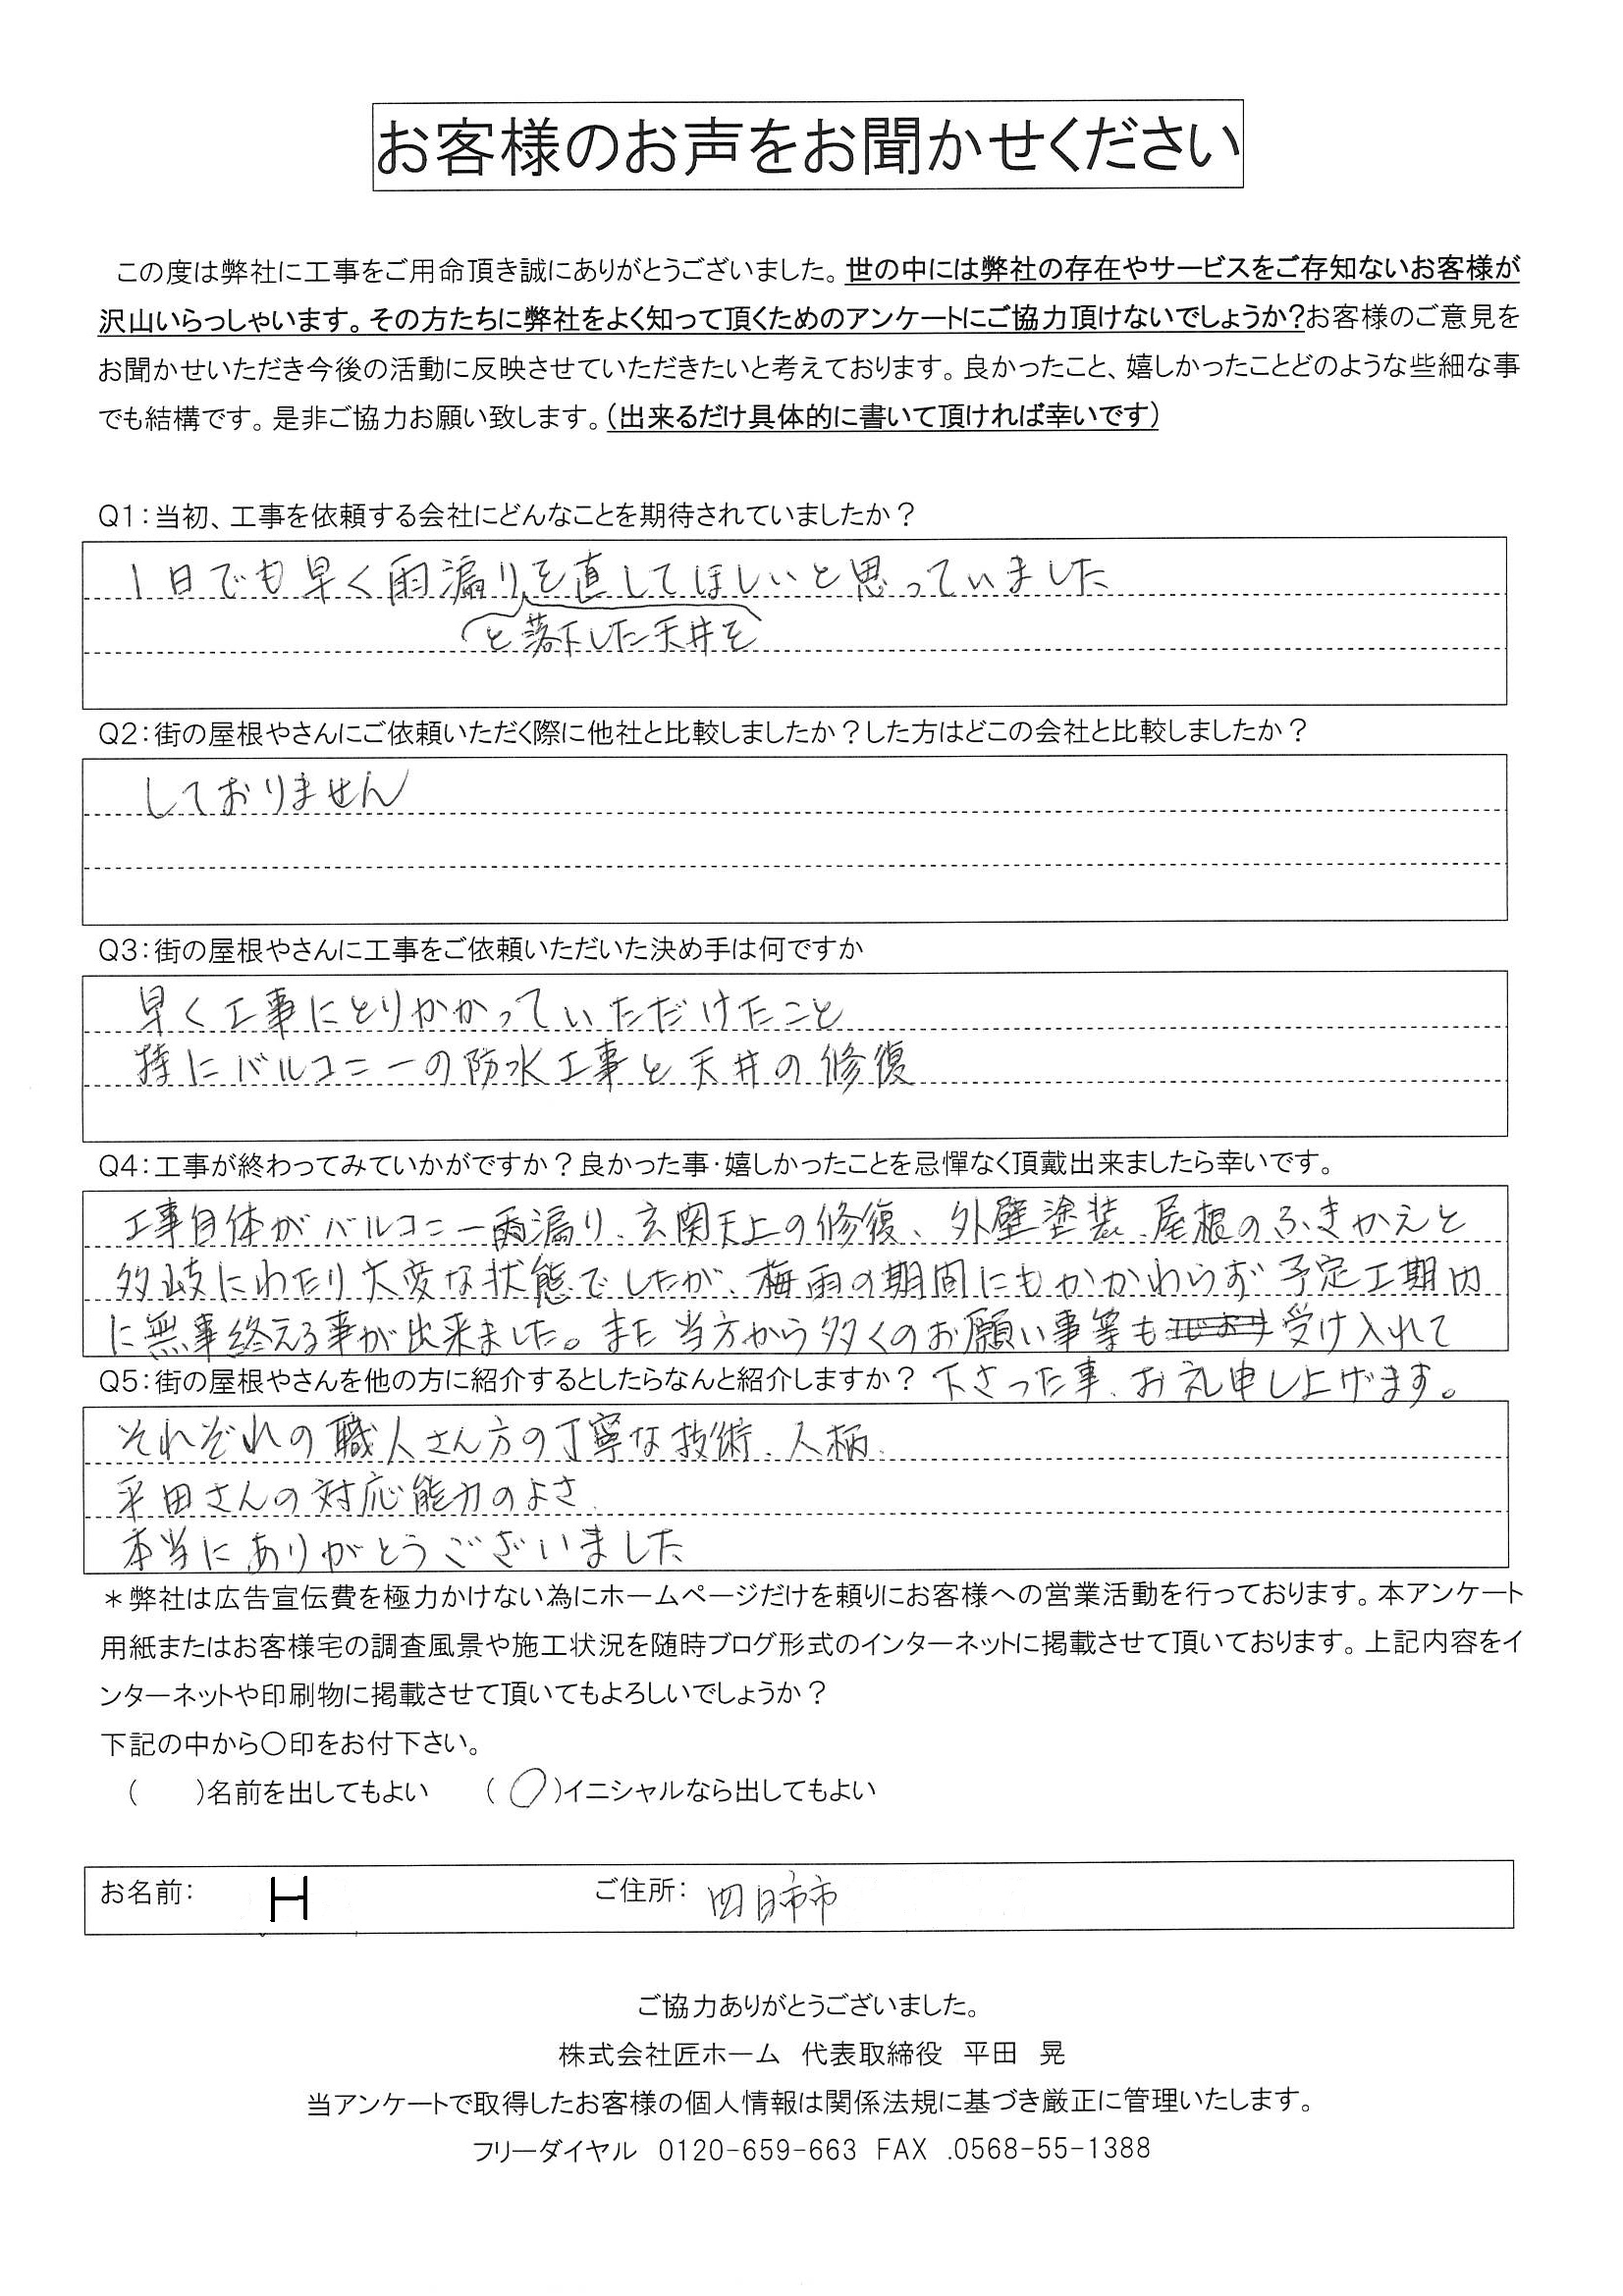 お客様のお声をお聞かせください
この度は弊社に工事をご用命頂き誠にありがとうございました。世の中には弊社の存在やサービスをご存知ないお客様が
沢山いらっしゃいます。その方たちに弊社をよく知って頂くためのアンケートにご協力頂けないでしょうか?お客様のご意見を
お聞かせいただき今後の活動に反映させていただきたいと考えております。良かったこと、嬉しかったことどのような些細な事
でも結構です。是非ご協力お願い致します。(出来るだけ具体的に書いて頂ければ幸いです)
Q1:当初、工事を依頼する会社にどんなことを期待されていましたか?
1日でも早く雨漏りを直してほしいと思っていました
と落下した天井を
Q2:街の屋根やさんにご依頼いただく際に他社と比較しましたか?した方はどこの会社と比較しましたか?
しておりません
Q3:街の屋根やさんに工事をご依頼いただいた決め手は何ですか
早く工事にとりかかっていただけたこと
特にバルコニーの防水工事と天井の修復
Q4:工事が終わってみていかがですか?良かった事・嬉しかったことを忌憚なく頂戴出来ましたら幸いです。
工事自体がバルコニー雨漏り、玄関天上の修復、外壁塗装、屋根のふきかえと
多岐にわたり大変な状態でしたが、梅雨の期間にもかかわらず予定工期内
に無事終える事が出来ました。また当方から多くのお願い事等も受け入れて
Q5:街の屋根やさんを他の方に紹介するとしたらなんと紹介しますか? 下さった事、お礼申し上げます。
それぞれの職人さん方の丁寧な技術、人柄、
平田さんの対応能力のよさ、
本当にありがとうございました
*弊社は広告宣伝費を極力かけない為にホームページだけを頼りにお客様への営業活動を行っております。本アンケート
用紙またはお客様宅の調査風景や施工状況を随時ブログ形式のインターネットに掲載させて頂いております。上記内容をイ
ンターネットや印刷物に掲載させて頂いてもよろしいでしょうか?
下記の中から〇印をお付下さい。
( )名前を出してもよい (〇)イニシャルなら出してもよい
お名前: H ご住所: 四日市市
ご協力ありがとうございました。
株式会社匠ホーム 代表取締役 平田 晃
当アンケートで取得したお客様の個人情報は関係法規に基づき厳正に管理いたします。
フリーダイヤル 0120-659-663 FAX .0568-55-1388